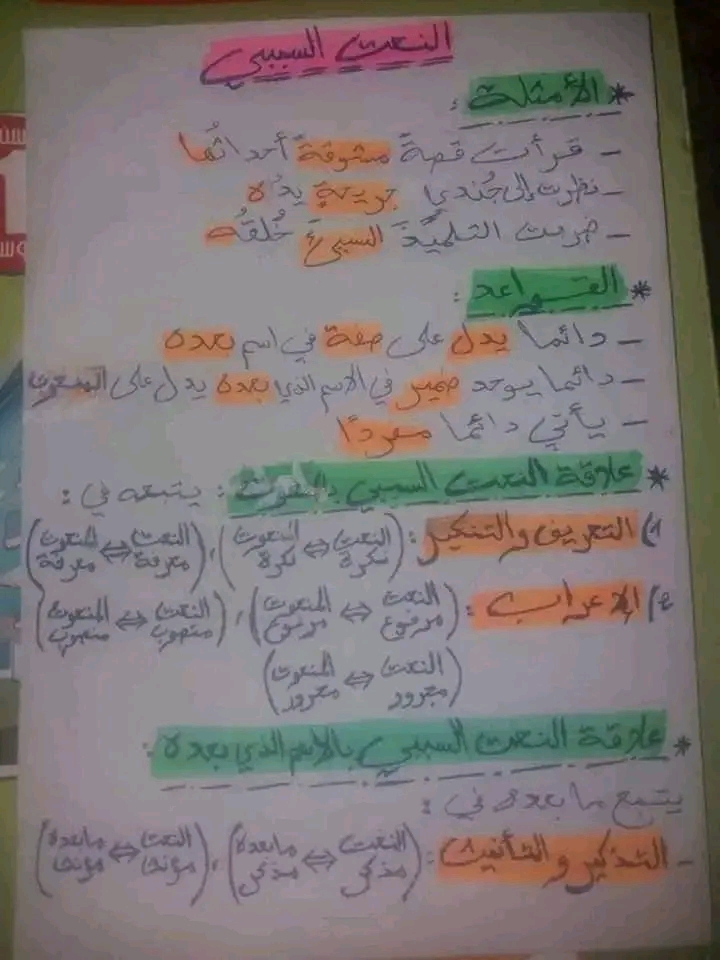 النعت السببي
* الأمثلة :
- قرأت قصةً مشوقةً أحداثُها
- نظرت إلى جُندي جريحةٍ يدُه
- ضربت التلميذَ السيئَ خُلقُه
* القواعد :
- دائما يدل على صفة في اسم بعده
- دائما يوجد ضمير في الاسم الذي بعده يدل على المنعوت
- يأتي دائما مفردًا
* علاقة النعت السببي بالمنعوت : يتبعه في :
1) التعريف والتنكير : (النعت نكرة ⇔ المنعوت نكرة) ، (النعت معرفة ⇔ المنعوت معرفة)
2) الاعراب : (النعت مرفوع ⇔ المنعوت مرفوع) ، (النعت منصوب ⇔ المنعوت منصوب)
(النعت مجرور ⇔ المنعوت مجرور)
* علاقة النعت السببي بالاسم الذي بعده :
يتبع ما بعده في :
- التذكير والتأنيث : (النعت مذكر ⇔ مابعده مذكر) ، (النعت مونث ⇔ مابعده مونث)
1